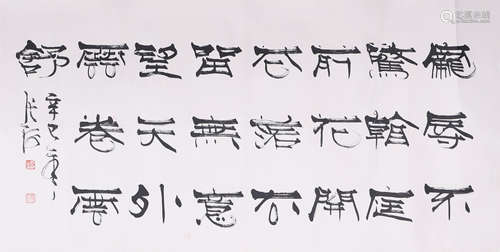 寵辱不
驚看庭
前花開
花落去
留無意
望天外
雲卷雲
舒
辛巳